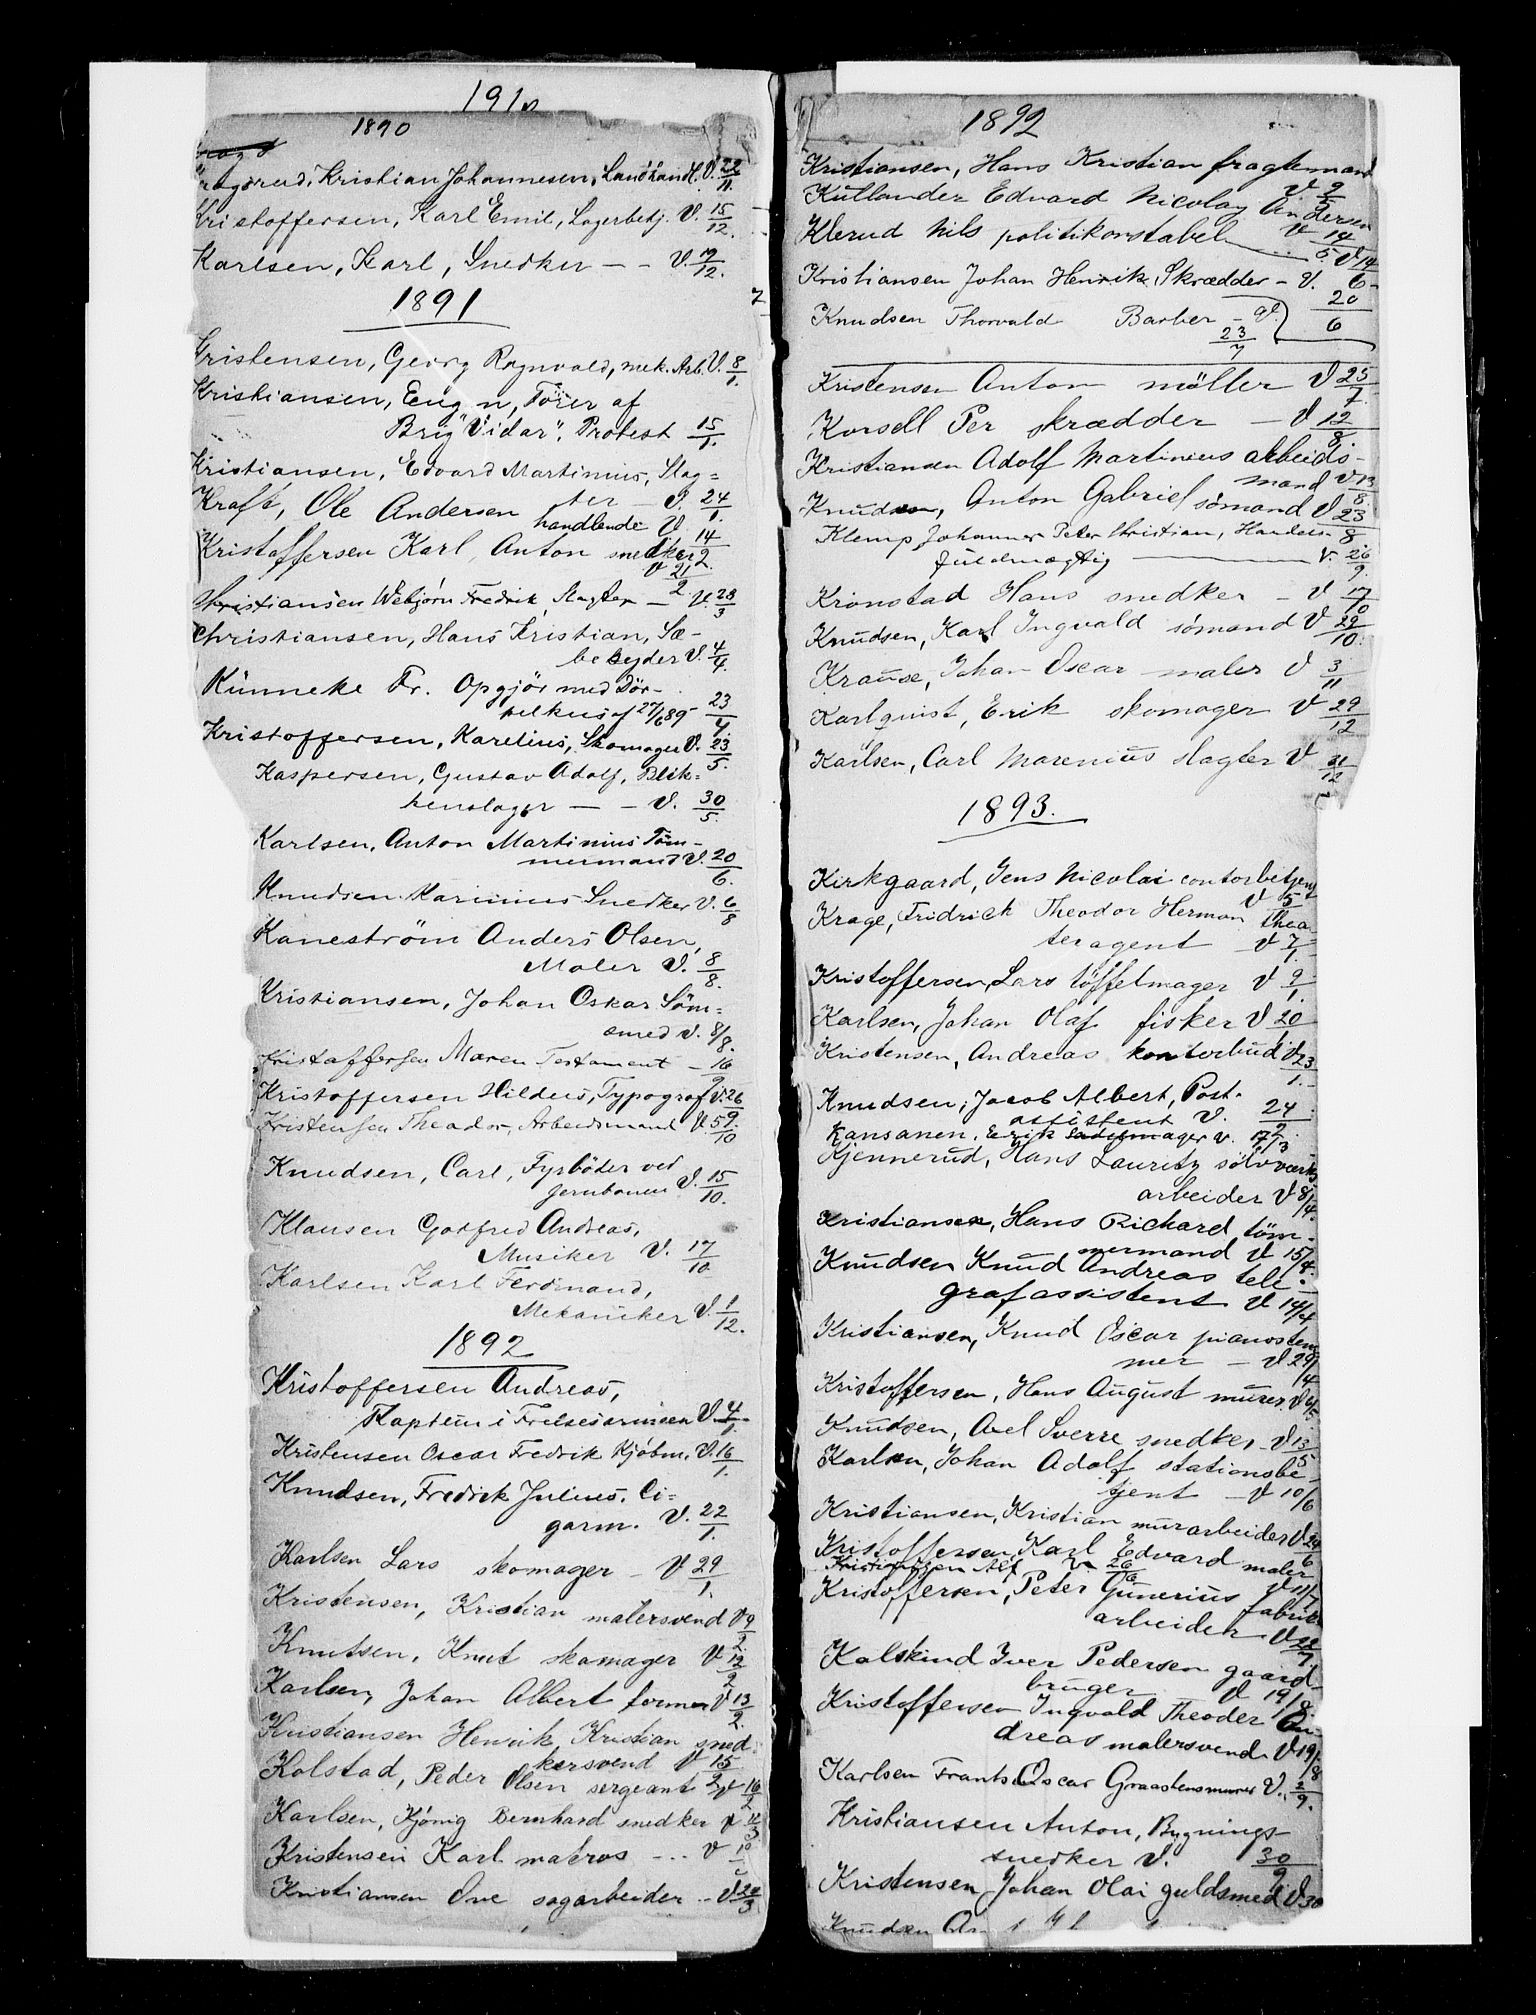 1910
1890
Kristian Johannesen, Landhandl. V. 22/11
Kristoffersen, Karl Emil, Lagerbetj. V. 15/12.
Karlsen, Karl, Snedker — — V. 19/12.
1891
Kristensen, Georg Ragnvald, mek. Arb. V. 8/1.
Kristiansen, Eug n, Förer af
Brig "Vidar". Protest 15/1.
Kristiansen, Edvard Martinius, Slag=
ter — V. 24/1.
Kraft, Ole Andersen handlende V. 14/2
Kristoffersen Karl Anton snedker
V 21/2
Christiansen Webjörn Fredrik, Slagter — V. 28/3
Christiansen, Hans Kristian, Sæ-
besyder V. 4/4.
Künneke Fr. Opgjör med Dör-
pelkus af 27/6 89 - 23/4
Kristoffersen, Karelius, Skomager V. 23/5.
Kaspersen, Gustav Adolf, Blik-
kenslager — — V. 30/5.
Karlsen, Anton Martinius Töm-
mermand V. 20/6.
Knudsen Marinius Snedker V. 6/8
Kaneström Anders Olsen,
Maler V. 8/8.
Kristiansen, Johan Oskar Söm=
smed V. 8/8.
Kristoffersen Maren Testament — 16/9
Kristoffersen Hildeus, Typograf V. 26/9.
Kristensen Theodor, Arbeidsmand V. 5/10
Knudsen, Carl, Fyrböder ved
Jernbanen V. 15/10.
Klausen Gotfred Andreas,
Musiker V. 17/10
Karlsen Karl Ferdinand,
Mekaniker V. 1/12.
1892
Kristoffersen Andreas,
Kaptein i Frelsesarmeen V. 4/1.
Kristensen Oscar Fredrik Kjöbm. V. 16/1.
Knudsen, Fredrik Julius. Ci=
garm. V. 22/1.
Karlsen Lars skomager — V 29/1.
Kristensen, Kristian malersvend V 9/2.
Knutsen, Knut skomager V 12/2
Karlsen, Johan Albert former V 13/2.
Kristiansen Henrik Kristian sned-
kersvend V 15/2
Kolstad, Peder Olsen sergeant V 16/2
Karlsen, Kjönig Bernhard snedker V
Kristensen Karl matros --- V
Kristiansen Ove sagarbeider -- V 24/3
1892
Kristiansen, Hans Kristian fragtemand
V. 9/5
Kullander Edvard Nicolay Andersen
V 14/5.
Klerud Nils politikonstabel — V 14/6
Kristiansen Johan Henrik Skrædder — V. 20/6
Knudsen Thorvald Barber — V.
23/7
Kristensen Anton möller V 25/7.
Korsell Per skrædder — V 12/8
Kristiansen Adolf Martinius arbeids-
mand V 13/8
Knudsen, Anton Gabriel sömand V 23/8
Klemp Johannes Peter Christian, Handels-
fuldmægtig — V. 26/9
Kronstad Hans snedker — V 17/10
Knudsen, Karl Ingvald sömand V 29/10.
Krause, Johan Oscar maler V 3/11
Karlquist, Erik skomager V 29/12
Karlsen, Carl Marenius slagter V 31/12
1893.
Kirkgaard, Jens Nicolai contorbetjent
V 5/1
Krage, Fridrick Theodor Herman Thea-
teragent V 7/1.
Kristoffersen, Lars töffelmager V 9/1.
Karlsen, Johan Olaf fisker V 20/1
Kristensen, Andreas kontorbud V 23/1.
Knudsen, Jacob Albert, Post-
assistent V. 24/2
Kansanen, Erik Sadelmager V. 17/3
Kjennerud, Hans Lauritz sölvværks
arbeider V 8/4.
Kristiansen, Hans Richard töm-
mermand V 15/4.
Knudsen Knud Andreas tele-
grafassistent V 14/4
Kristiansen, Knud Oscar pianostem-
mer — V 29/4
Kristoffersen, Hans August murer V 4/5.
Knudsen, Axel Sverre snedker — V 13/5
Karlsen, Johan Adolf stationsbe-
tjent — V 10/6
Kristiansen, Kristian murarbeider V 24/6
Kristoffersen, Karl Edvard maler
V 11/7
Kristiansen Alf V. 26/6
Kristoffersen, Peter Gunerius fabrik-
arbeider V 22/7
Kalskind Iver Pedersen gaard-
bruger V 19/8.
Kristoffersen Ingvald Theoder An-
dreas malersvend V 19/8
Karlsen Frants Oscar Graastensmurer V. 2/9.
Kristiansen Anton, Bygnings-
snedker V. 30/9
Kristensen Johan Olai guldsmed V 30
Knudsen